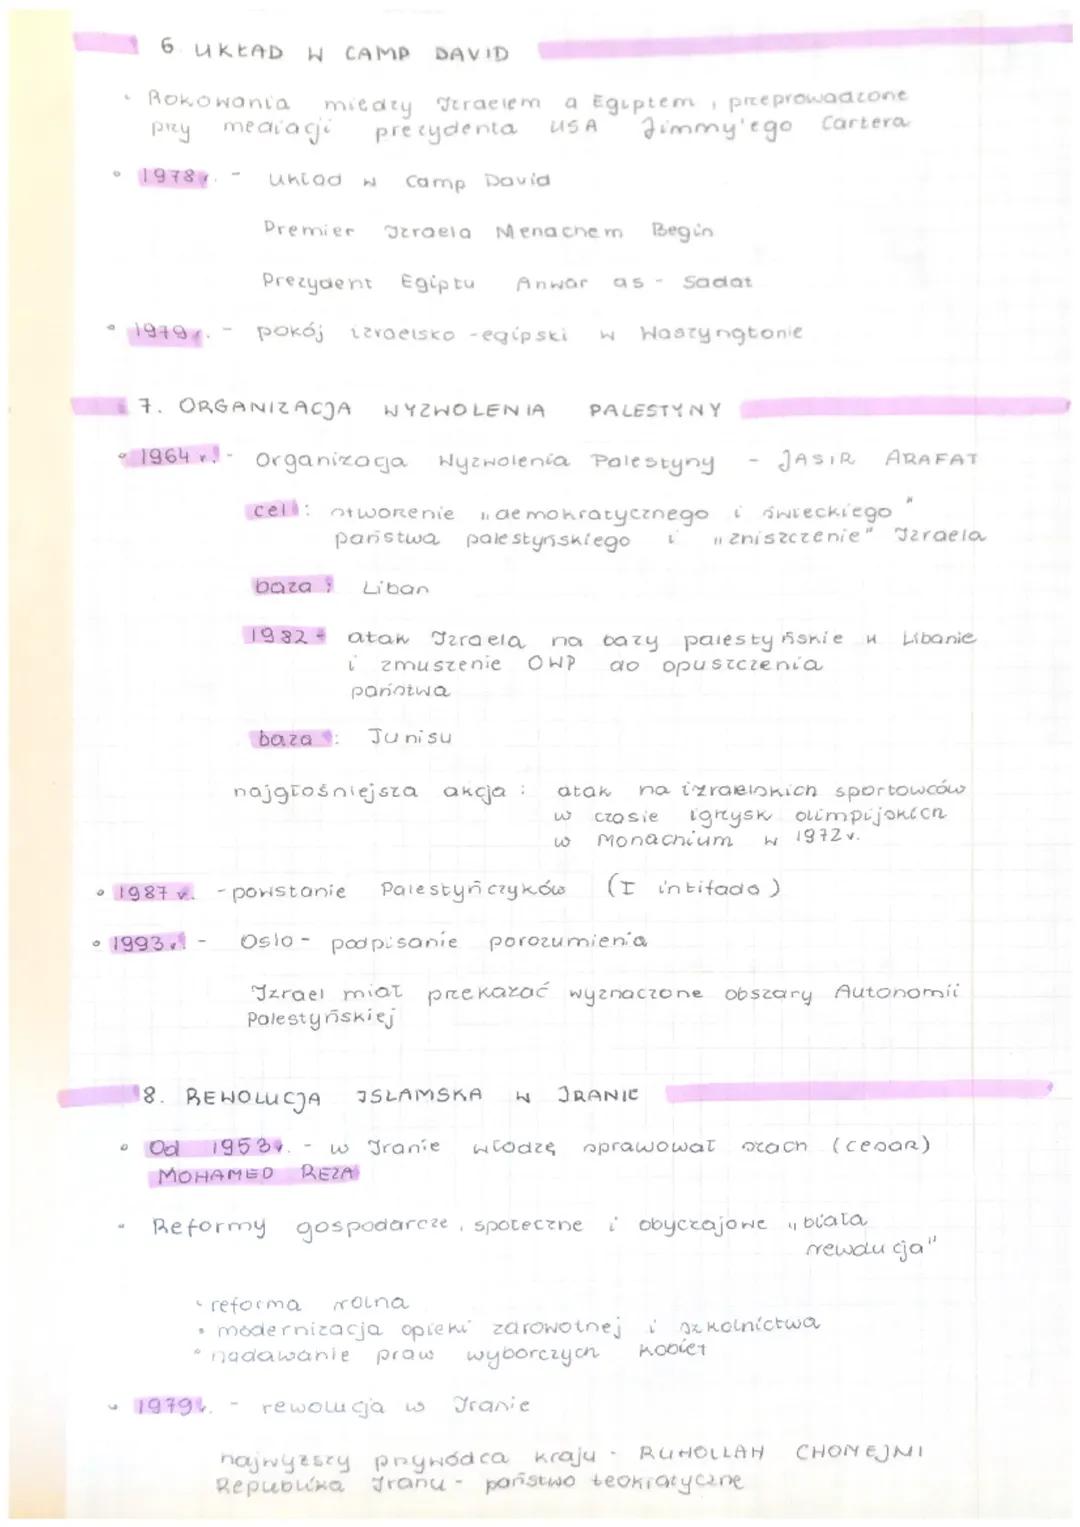 6. UKŁAD W CAMP DAVID
• Rokowania między Izraelem a Egiptem, przeprowadzone
przy mediacji prezydenta USA Jimmy'ego Cartera
• 1978 r. - Układ w Camp David
Premier Izraela Menachem Begin
Prezydent Egiptu Anwar as-Sadat
• 1979 r. - pokój izraelsko-egipski w Waszyngtonie
7. ORGANIZACJA WYZWOLENIA PALESTYNY
• 1964 r. - Organizacja Wyzwolenia Palestyny - JASIR ARAFAT
cel: otworzenie „demokratycznego i świeckiego"
państwa palestyńskiego i „zniszczenie" Izraela
baza: Liban
1982 - atak Izraela na bazy palestyńskie w Libanie
i zmuszenie OWP do opuszczenia
państwa
baza: Tunisu
najgłośniejsza akcja: atak na izraelskich sportowców
w czasie igrzysk olimpijskich
w Monachium w 1972 r.
• 1987 r. - powstanie Palestyńczyków (I intifada)
• 1993 r. - Oslo - podpisanie porozumienia
Izrael miał przekazać wyznaczone obszary Autonomii
Palestyńskiej
8. REWOLUCJA ISLAMSKA W IRANIE
• Od 1953 r. - w Iranie władzę sprawował szach (cesarz)
MOHAMED REZA
• Reformy gospodarcze, społeczne i obyczajowe „biała
rewolucja"
• reforma rolna
• modernizacja opieki zdrowotnej i szkolnictwa
• nadawanie praw wyborczych kobiet
• 1979 r. - rewolucja w Iranie
najwyższy przywódca kraju - RUHOLLAH CHOMEJNI
Republika Iranu - państwo teokratyczne